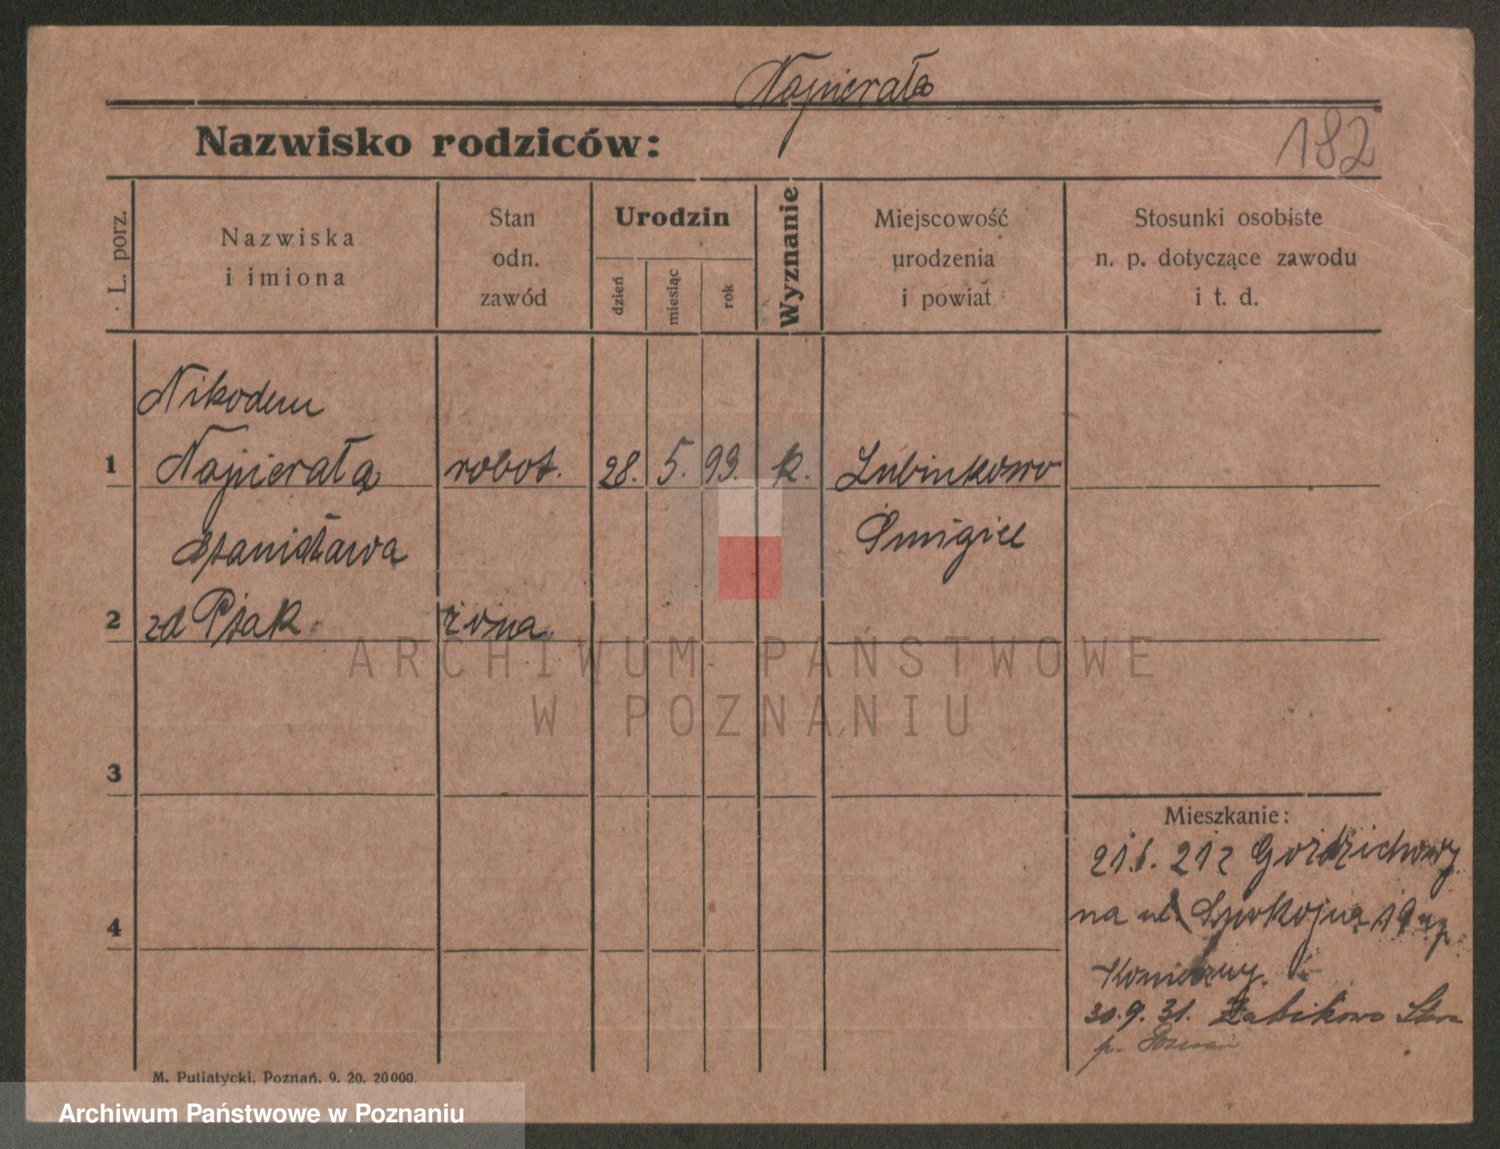 Napierała
Nazwisko rodziców:
182
L. porz.
Nazwiska
i imiona
Stan
odn.
zawód
Urodzin
dzień
miesiąc
rok
Wyznanie
Miejscowość
urodzenia
i powiat
Stosunki osobiste
n. p. dotyczące zawodu
i t. d.
Nikodem
1 Napierała robot. 28. 5. 93. k. Lubinkowo
Stanisława Śmigiel
2 zd Ptak. żona
3
4
Mieszkanie:
21. 212
na ul. Spokojną 19
Konieczny.
30.9.31. Żabikowo
p. Poznań
M. Putiatycki, Poznań. 9. 20. 20000.
ARCHIWUM PAŃSTWOWE
W POZNANIU
Archiwum Państwowe w Poznaniu